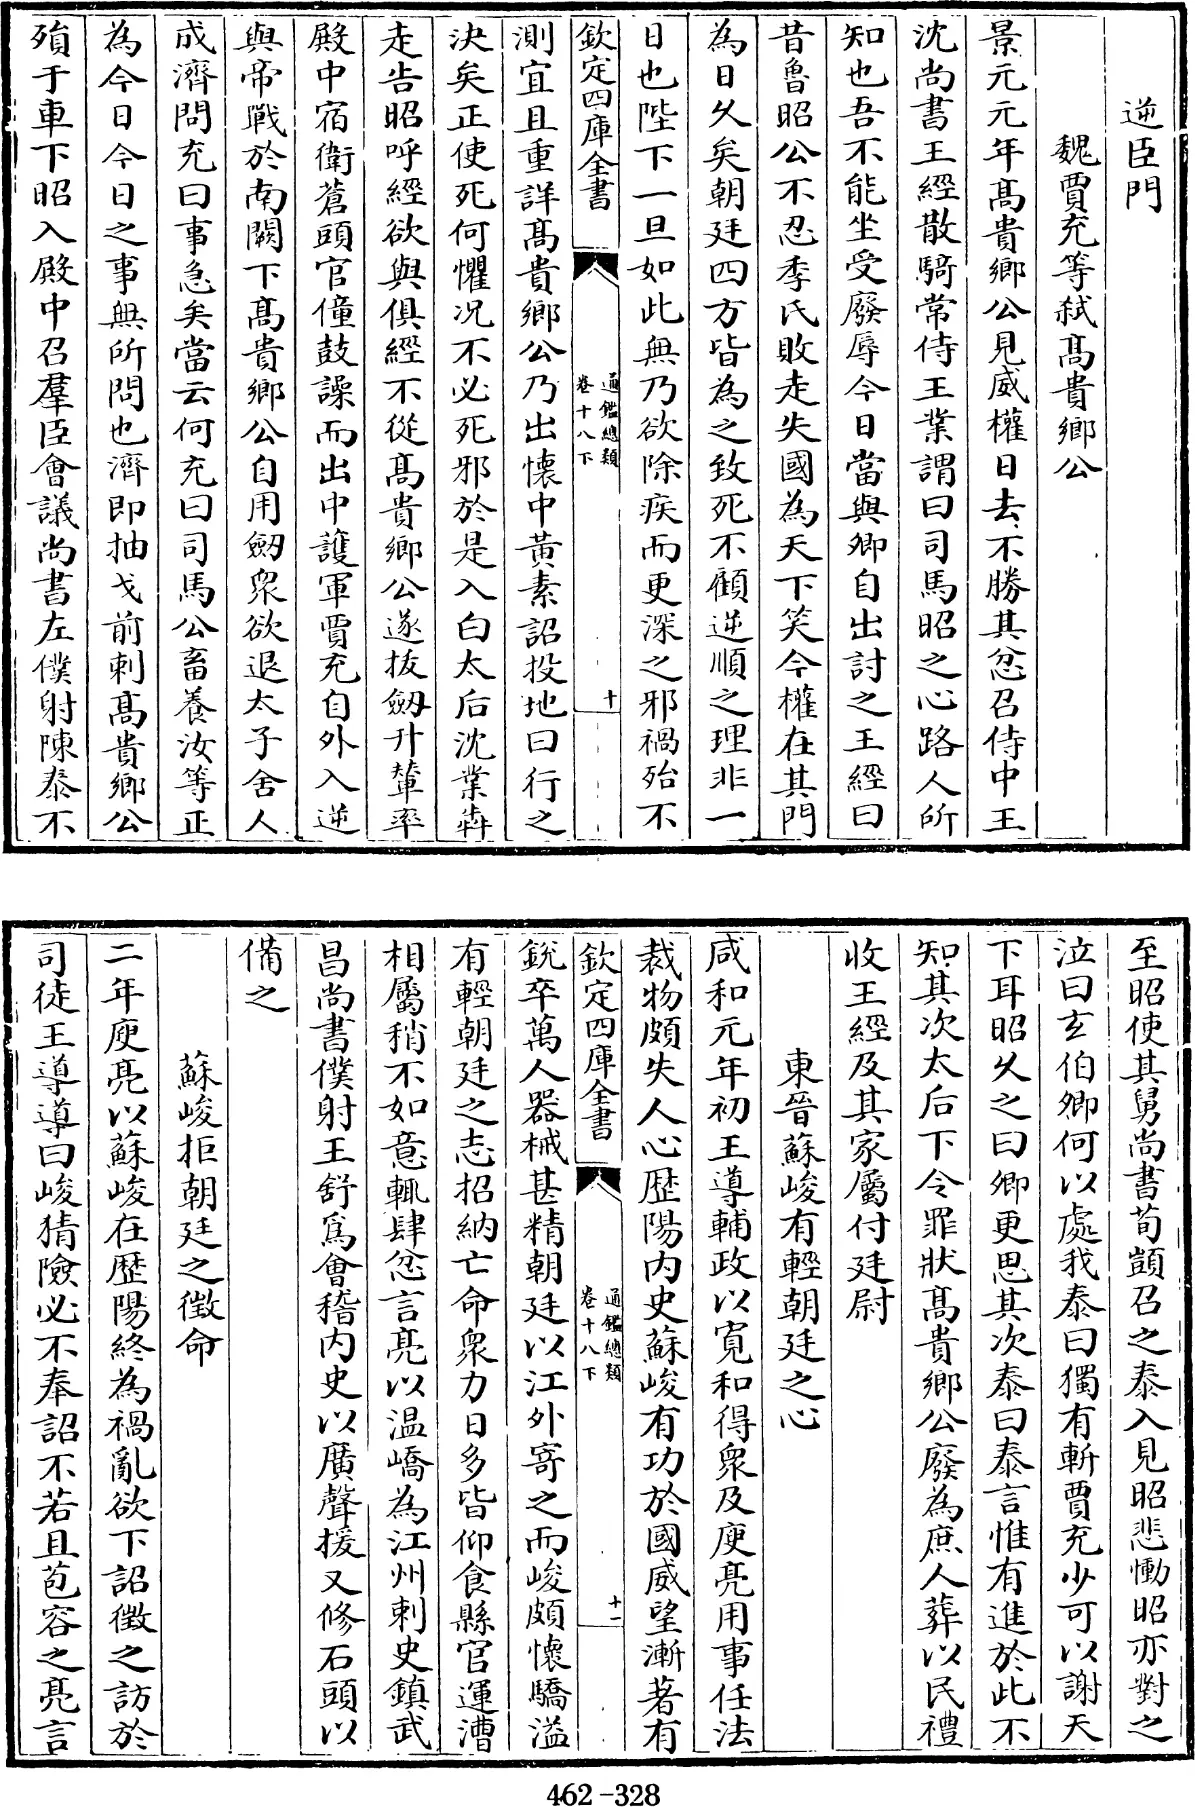 逆臣門
魏賈充等弑髙貴鄉公
景元元年髙貴鄉公見威權日去不勝其忿召侍中王
沈尚書王經散騎常侍王業謂曰司馬昭之心路人所
知也吾不能坐受廢辱今日當與卿自出討之王經曰
昔魯昭公不忍季氏敗走失國為天下笑今權在其門
為日久矣朝廷四方皆為之致死不顧逆順之理非一
日也陛下一旦如此無乃欲除疾而更深之邪禍殆不
欽定四庫全書
通鑑總類
卷十八下
十
測宜且重詳髙貴鄉公乃出懷中黃素詔投地曰行之
決矣正使死何懼况不必死邪於是入白太后沈業犇
走告昭呼經欲與俱經不從髙貴鄉公遂拔劒升輦率
殿中宿衛蒼頭官僮鼓譟而出中護軍賈充自外入逆
與帝戰於南闕下髙貴鄉公自用劒衆欲退太子舍人
成濟問充曰事急矣當云何充曰司馬公畜養汝等正
為今日今日之事無所問也濟即抽戈前刺髙貴鄉公
殞于車下昭入殿中召羣臣會議尚書左僕射陳泰不
至昭使其舅尚書荀顗召之泰入見昭悲慟昭亦對之
泣曰玄伯卿何以處我泰曰獨有斬賈充少可以謝天
下耳昭久之曰卿更思其次泰曰泰言惟有進於此不
知其次太后下令罪狀髙貴鄉公廢為庶人葬以民禮
收王經及其家屬付廷尉
東晉蘇峻有輕朝廷之心
咸和元年初王導輔政以寛和得衆及庾亮用事任法
裁物頗失人心歴陽内史蘇峻有功於國威望漸著有
欽定四庫全書
通鑑總類
卷十八下
十一
銳卒萬人器械甚精朝廷以江外寄之而峻頗懷驕溢
有輕朝廷之志招納亡命衆力日多皆仰食縣官運漕
相屬稍不如意輒肆忿言亮以温嶠為江州刺史鎮武
昌尚書僕射王舒爲會稽内史以廣聲援又修石頭以
備之
蘇峻拒朝廷之徵命
二年庾亮以蘇峻在歴陽終為禍亂欲下詔徵之訪於
司徒王導導曰峻猜險必不奉詔不若且苞容之亮言
462-328